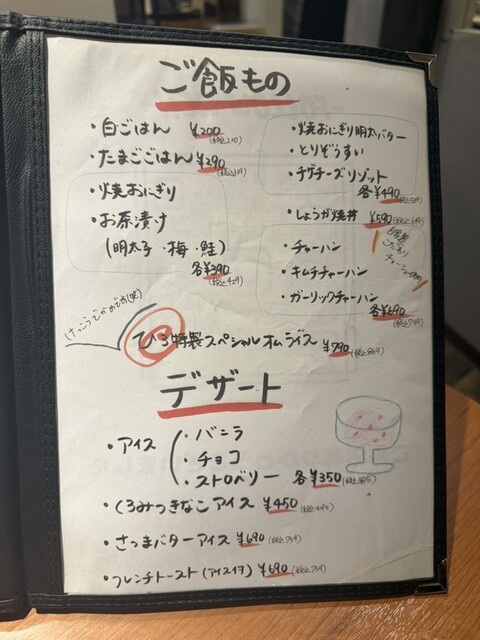 ご飯もの
・白ごはん ¥200(税込220)
・たまごごはん ¥290(税込319)
・焼おにぎり
・お茶漬け
(明太子・梅・鮭)
各¥390(税込429)
・焼おにぎり明太バター
・とりぞうすい
・チゲチーズリゾット
各¥490(税込539)
・しょうが焼丼 ¥590(税込649)
・チャーハン
・キムチチャーハン
・ガーリックチャーハン
各¥690(税込759)
自家製
こだわり
チャーシュー使用
けっこうでかめです(笑)
てひろ特製スペシャルオムライス ¥790(税込869)
デザート
・アイス
・バニラ
・チョコ
・ストロベリー 各¥350(税込385)
・くるみつきなこアイス ¥450(税込495)
・さつまバターアイス ¥690(税込759)
・フレンチトースト(アイス付) ¥690(税込759)